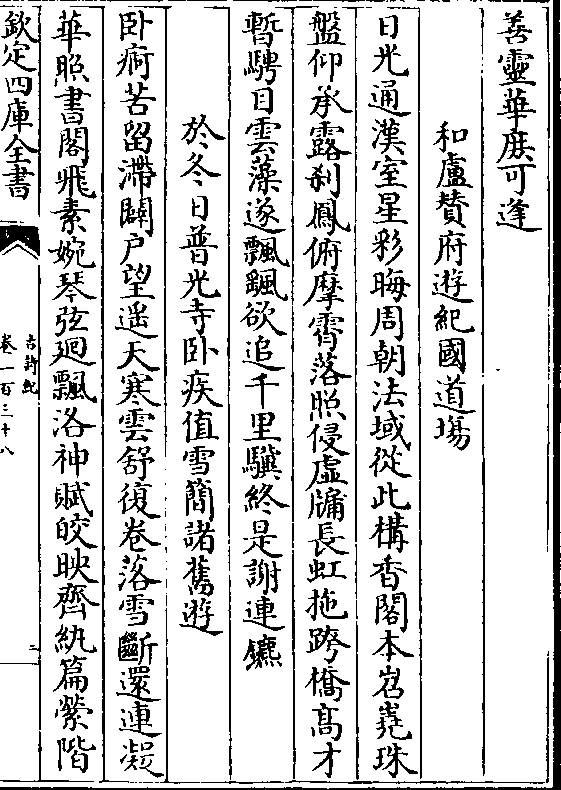 善靈華庶可逢
和盧賛府遊紀國道塲
日光通漢室星彩晦周朝法域從此構香閣本岧嶤珠
盤仰承露刹鳳俯摩霄落照侵虛牖長虹拖跨橋髙才
暫騁目雲藻遂飄颻欲追千里驥終是謝連鑣
於冬日普光寺卧疾值雪簡諸舊遊
卧痾苦留滯闢户望遥天寒雲舒復卷落雪斷還連凝
華照書閣飛素婉琴弦廻飄洛神賦皎映齊紈篇縈階
欽定四庫全書
古詩紀
卷一百三十八
二